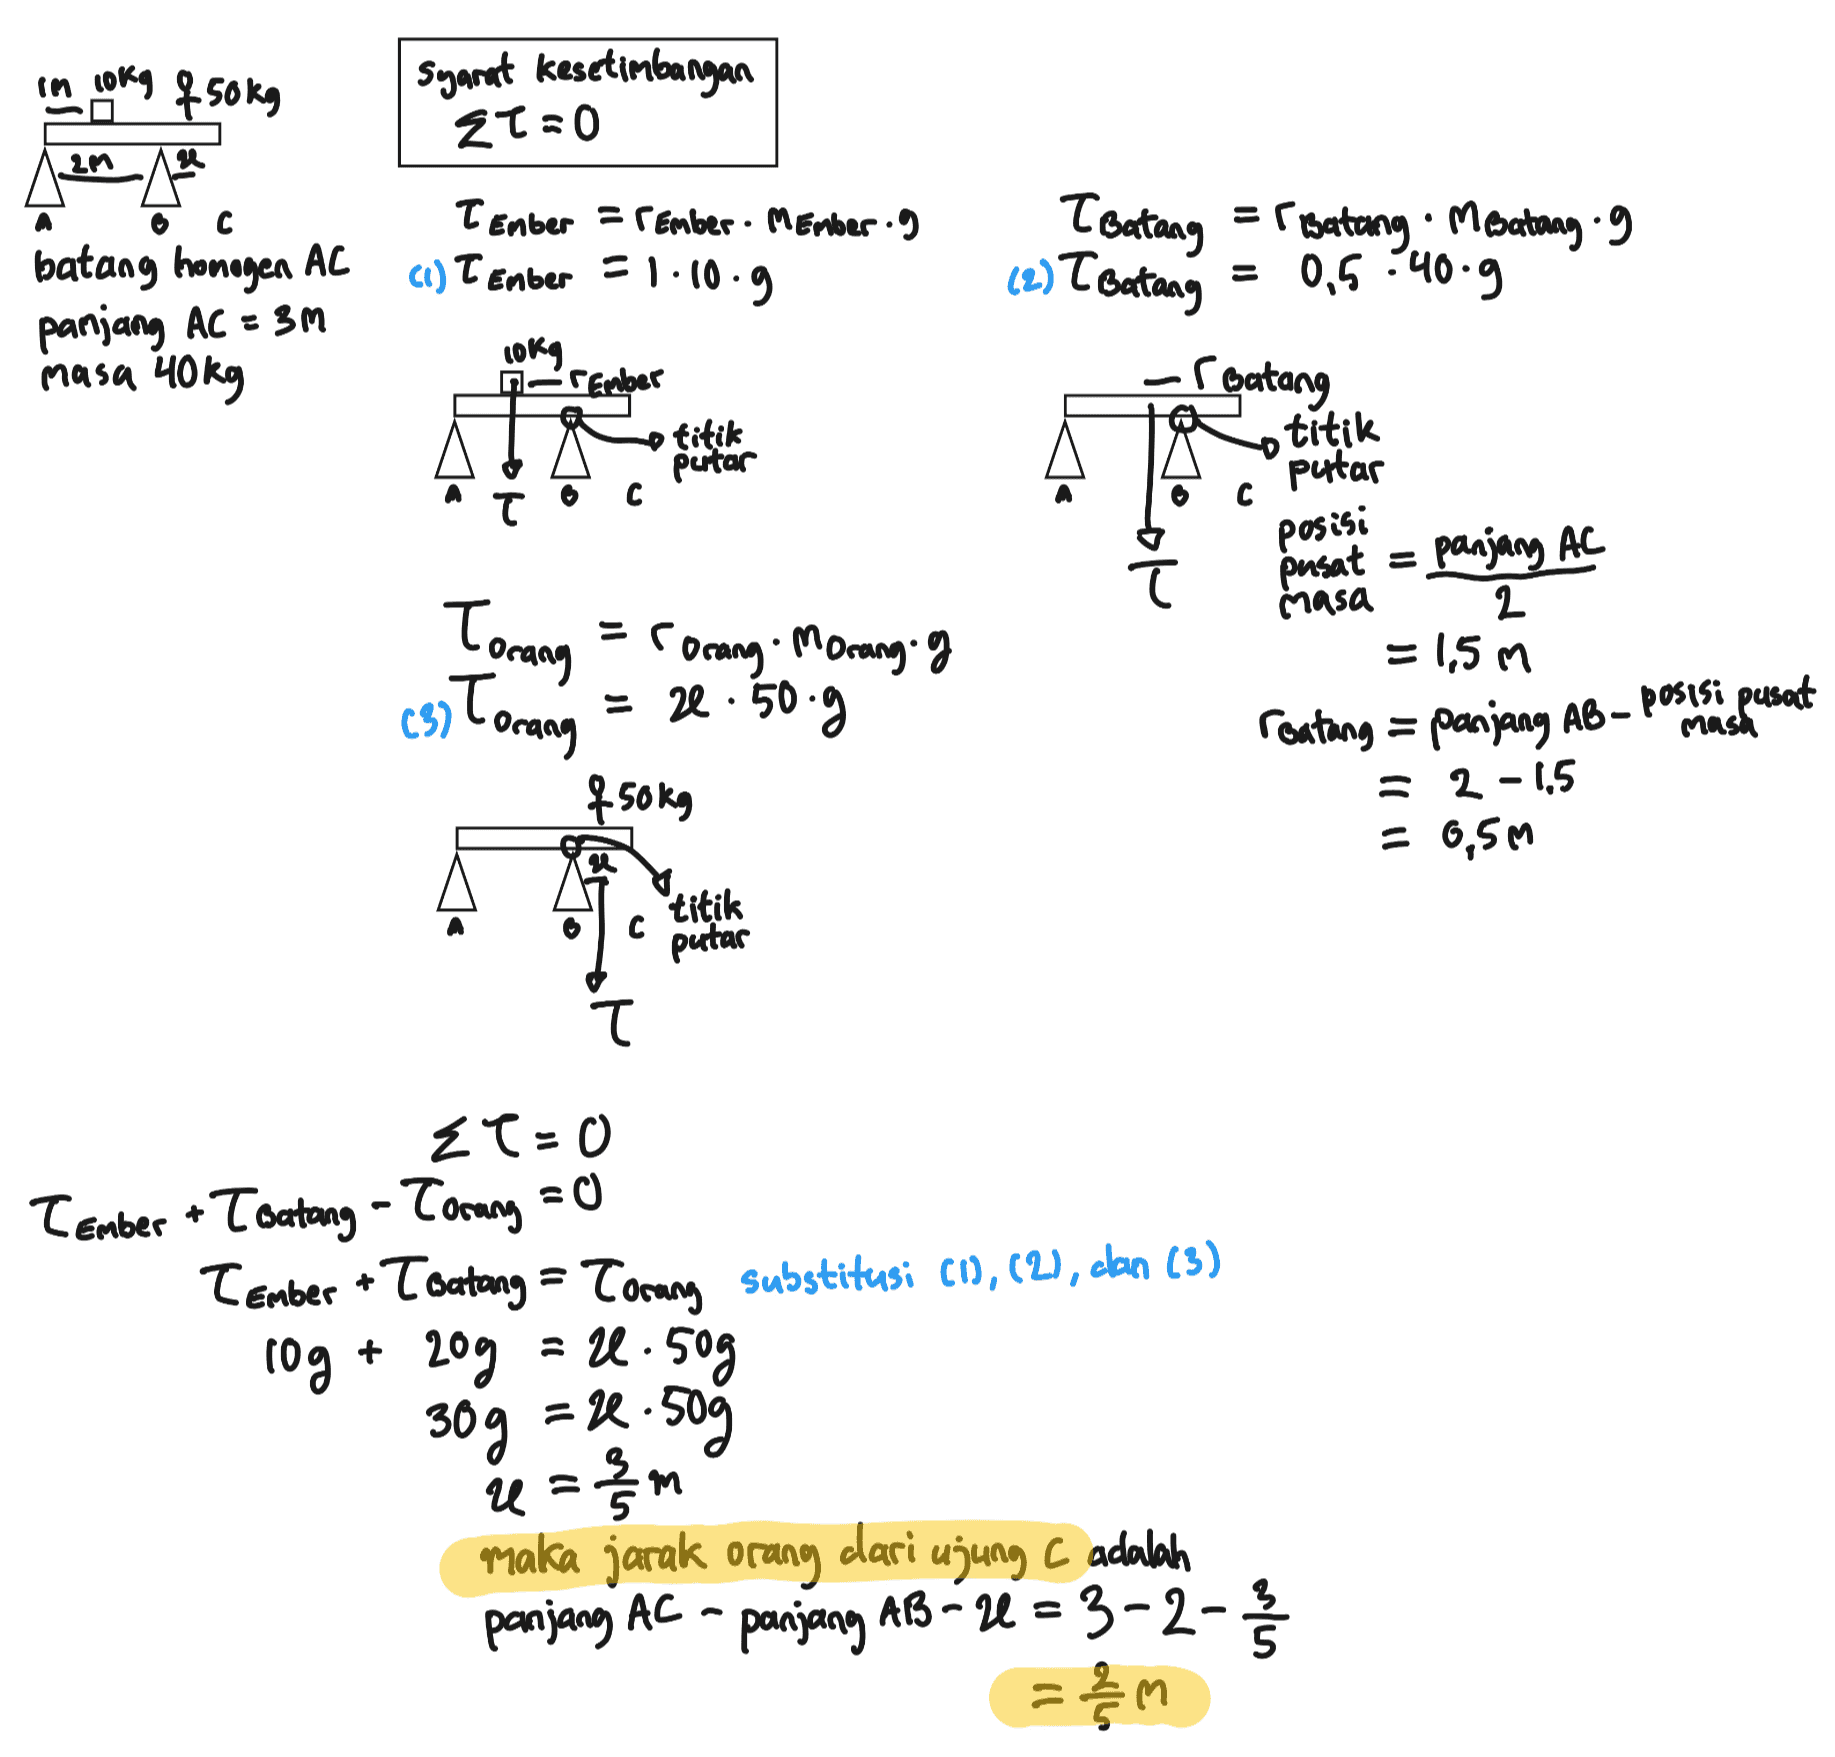 1m 10kg 50kg
2m x
A B C
batang homogen AC
panjang AC = 3m
masa 40kg
syarat kesetimbangan
Στ = 0
τEmber = rEmber · mEmber · g
(1) τEmber = 1 · 10 · g
10kg
rEmber
titik
putar
A τ B C
τBatang = rBatang · mBatang · g
(2) τBatang = 0,5 · 40 · g
rBatang
titik
putar
A B C
τ
posisi
pusat
masa
= panjang AC / 2
= 1,5 m
rBatang = panjang AB - posisi pusat masa
= 2 - 1.5
= 0,5m
τOrang = rOrang · mOrang · g
(3) τOrang = x · 50 · g
50kg
x
titik
putar
A B C
τ
Στ = 0
τEmber + τBatang - τOrang = 0
τEmber + τBatang = τOrang substitusi (1), (2), dan (3)
10g + 20g = x · 50g
30g = x · 50g
x = 3/5 m
maka jarak orang dari ujung C adalah
panjang AC - panjang AB - x = 3 - 2 - 3/5
= 2/5 m